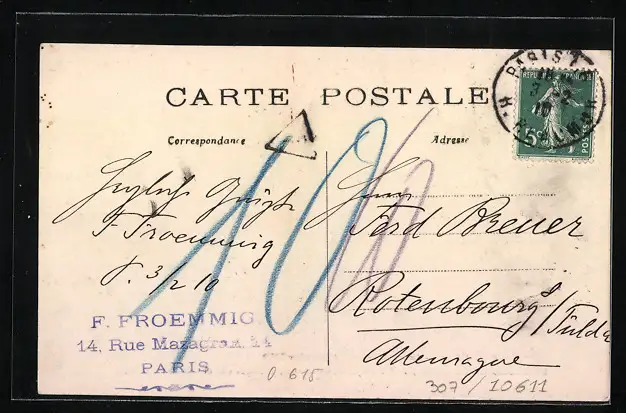 CARTE POSTALE
Correspondance
Adresse
PARIS
3 - 2
10
REPUBLIQUE FRANÇAISE
5c
POSTES
T
10
Herzliche Grüße
F. Froemmig
P. 3/2 10
Herrn
Ferd Breuer
Rotenbourg a/Fulda
Allemagne
F. FROEMMIG
14, Rue Mazagran, 14
PARIS
0.615
307 / 10611